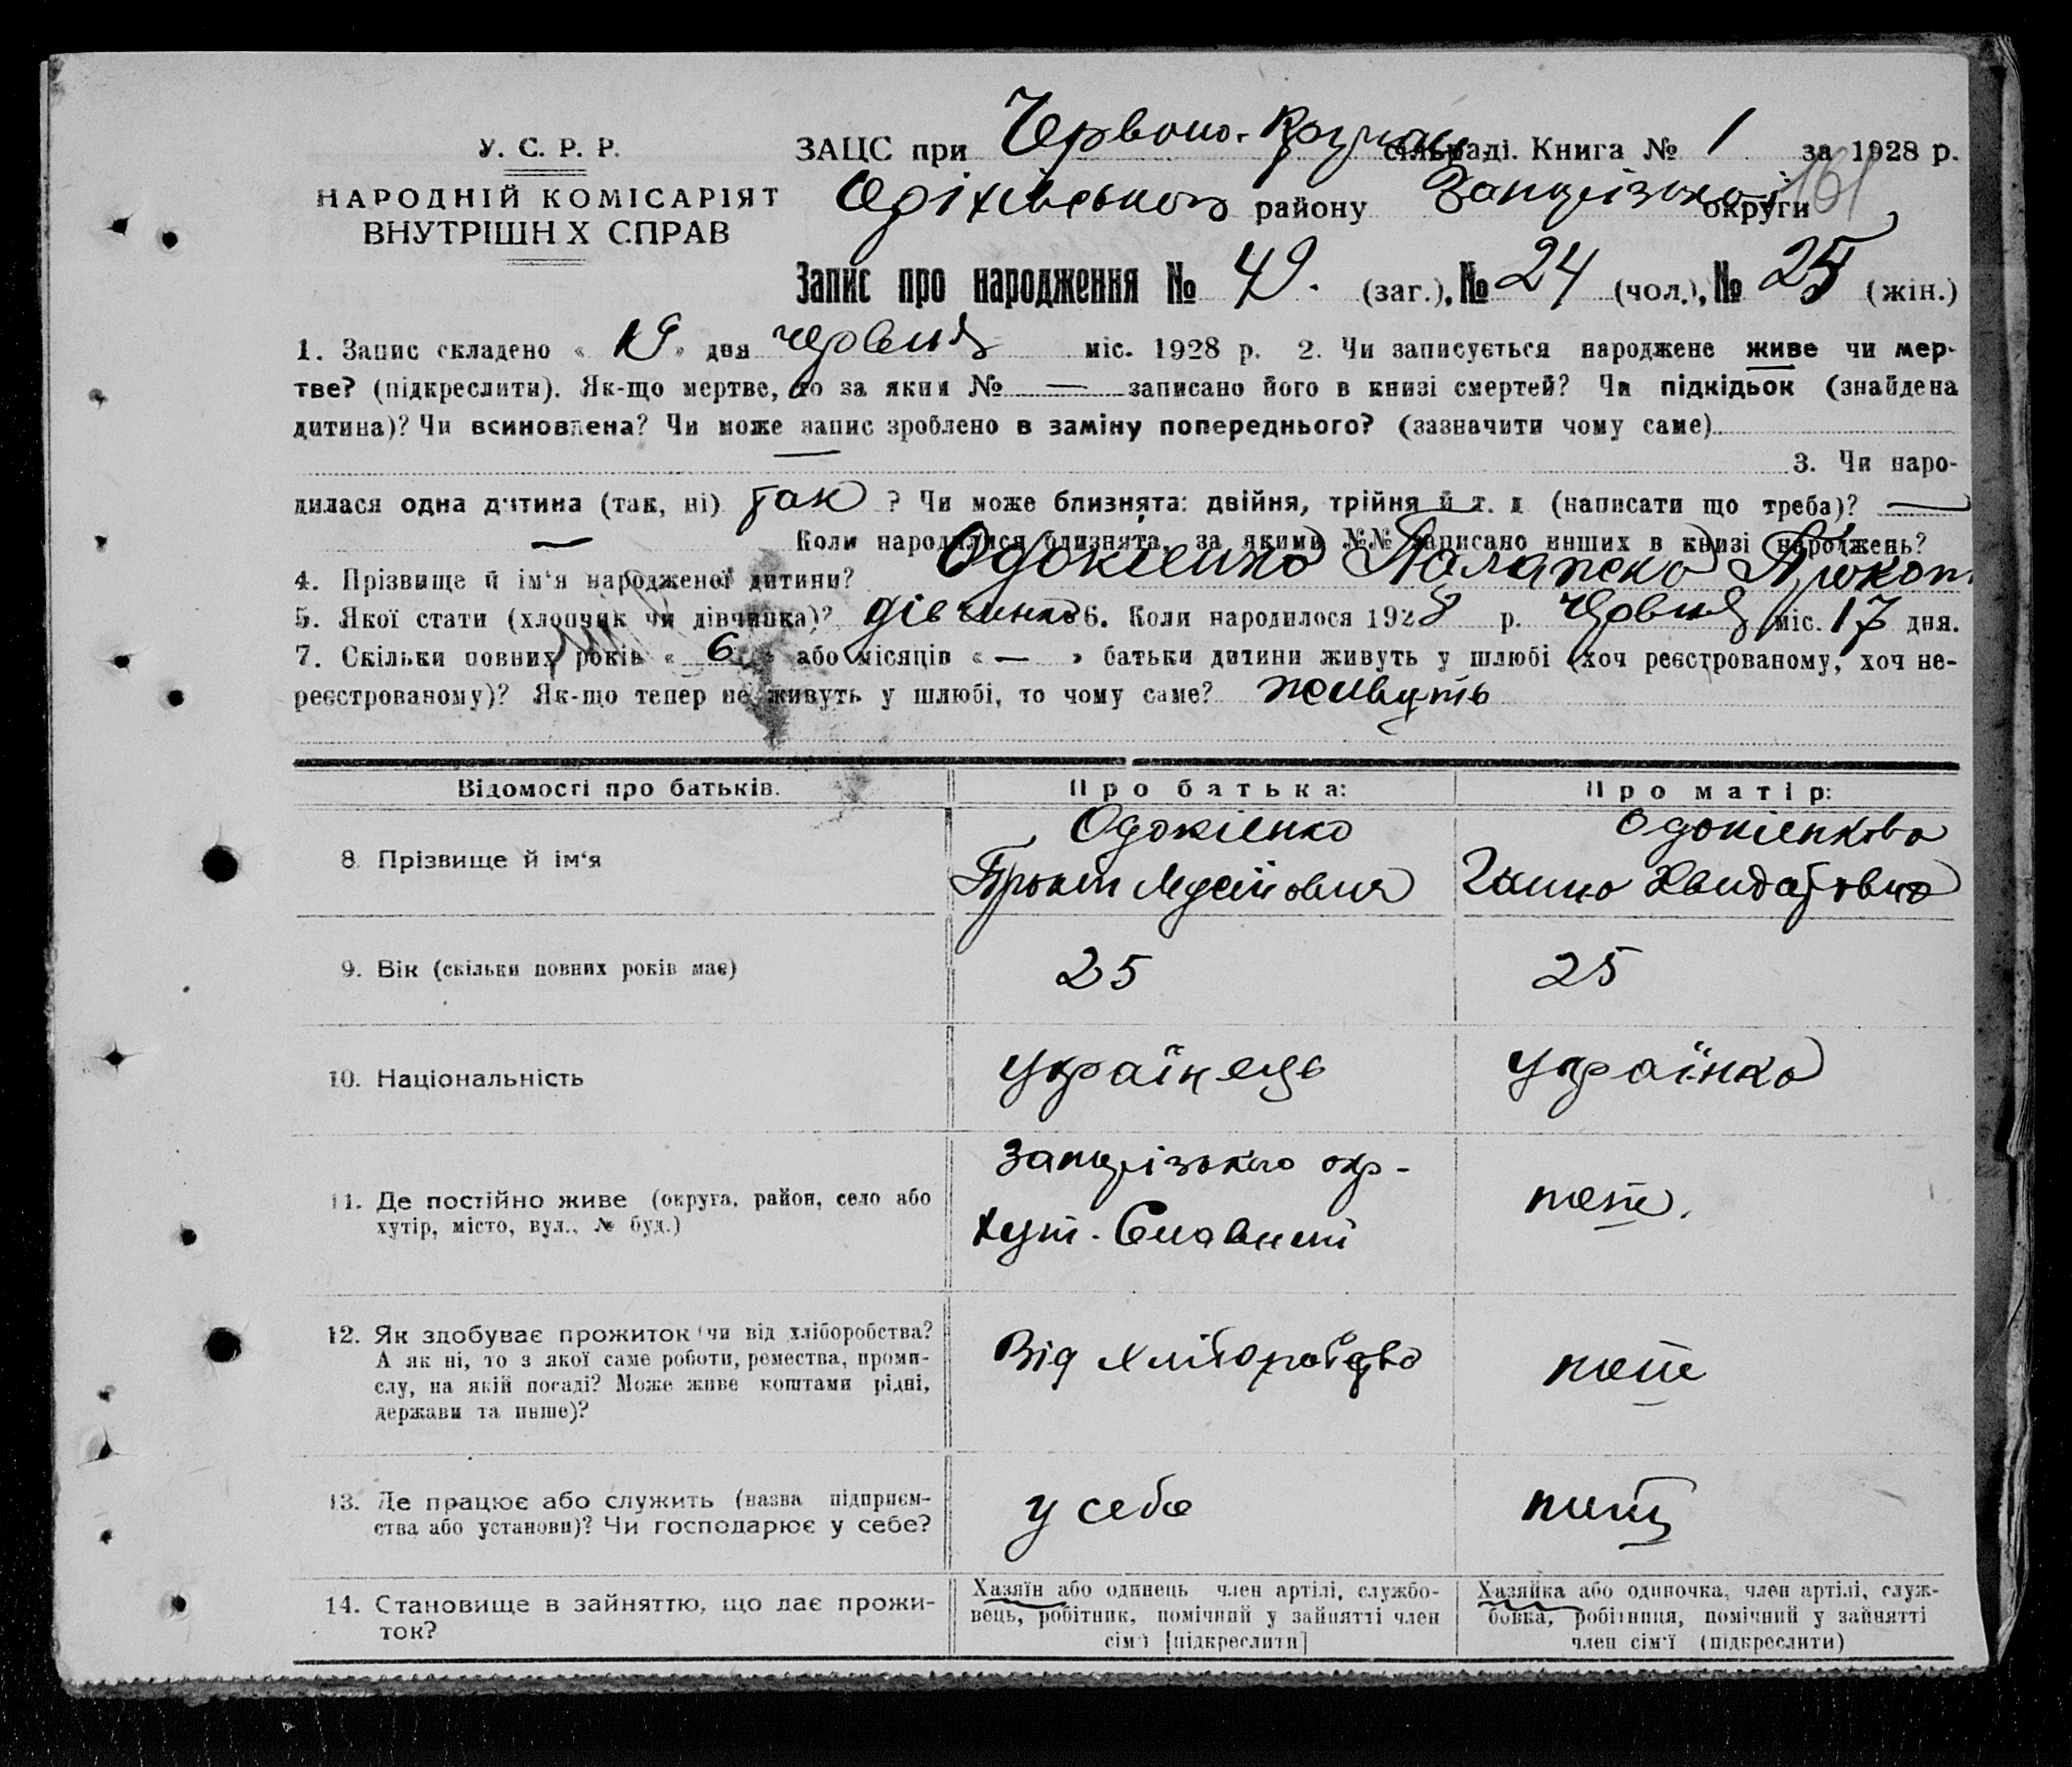 У. С. Р. Р.
НАРОДНІЙ КОМІСАРІЯТ
ВНУТРІШН Х СПРАВ
ЗАЦС при Червоно- сільраді. Книга № 1 за 1928 р.
Оріхівського району Запорізької округи 161
Запис про народження № 49. (заг.), № 24 (чол.), № 25 (жін.)
1. Запис складено « 19 » дня червня міс. 1928 р. 2. Чи записується народжене живе чи мер-
тве? (підкреслити). Як-що мертве, то за яким № — записано його в книзі смертей? Чи підкідьок (знайдена
дитина)? Чи всиновлена? Чи може запис зроблено в заміну попереднього? (зазначити чому саме)
— 3. Чи наро-
дилася одна дитина (так, ні) так ? Чи може близнята: двійня, трійня й т. д (написати що треба)? —
— Коли народилися близнята, за якими №№ записано инших в книзі народжень?
4. Прізвище й ім'я народженої дитини? Одокіенко Палажка Прокоп.
5. Якої стати (хлопчик чи дівчинка)? дівчинка 6. Коли народилося 1928 р. Червня міс. 17 дня.
7. Скільки повних років « 6 » або місяців « — » батьки дитини живуть у шлюбі (хоч реєстрованому, хоч не-
реєстрованому)? Як-що тепер не живуть у шлюбі, то чому саме? живуть
Відомості про батьків.
Про батька:
Про матір:
8. Прізвище й ім'я
Одокіенко
Прокіп Мусійович
Одокіенкова
Ганна
9. Вік (скільки повних років має)
25
25
10. Національність
Українець
Українка
11. Де постійно живе (округа, район, село або
хутір, місто, вул., № буд.)
Запорізького окр-
хут.
теж.
12. Як здобуває прожиток (чи від хліборобства?
А як ні, то з якої саме роботи, ремества, проми-
слу, на якій посаді? Може живе коштами рідні,
держави та инше)?
Від хліборобства
теж
13. Де працює або служить (назва підприєм-
ства або установи)? Чи господарює у себе?
у себе
14. Становище в зайняттю, що дає прожи-
ток?
Хазяїн або одинець член артілі, службо-
вець, робітник, помічний у зайнятті член
сім'ї [підкреслити]
Хазяйка або одиночка, член артілі, служ-
бовка, робітниця, помічний у зайнятті
член сім'ї (підкреслити)